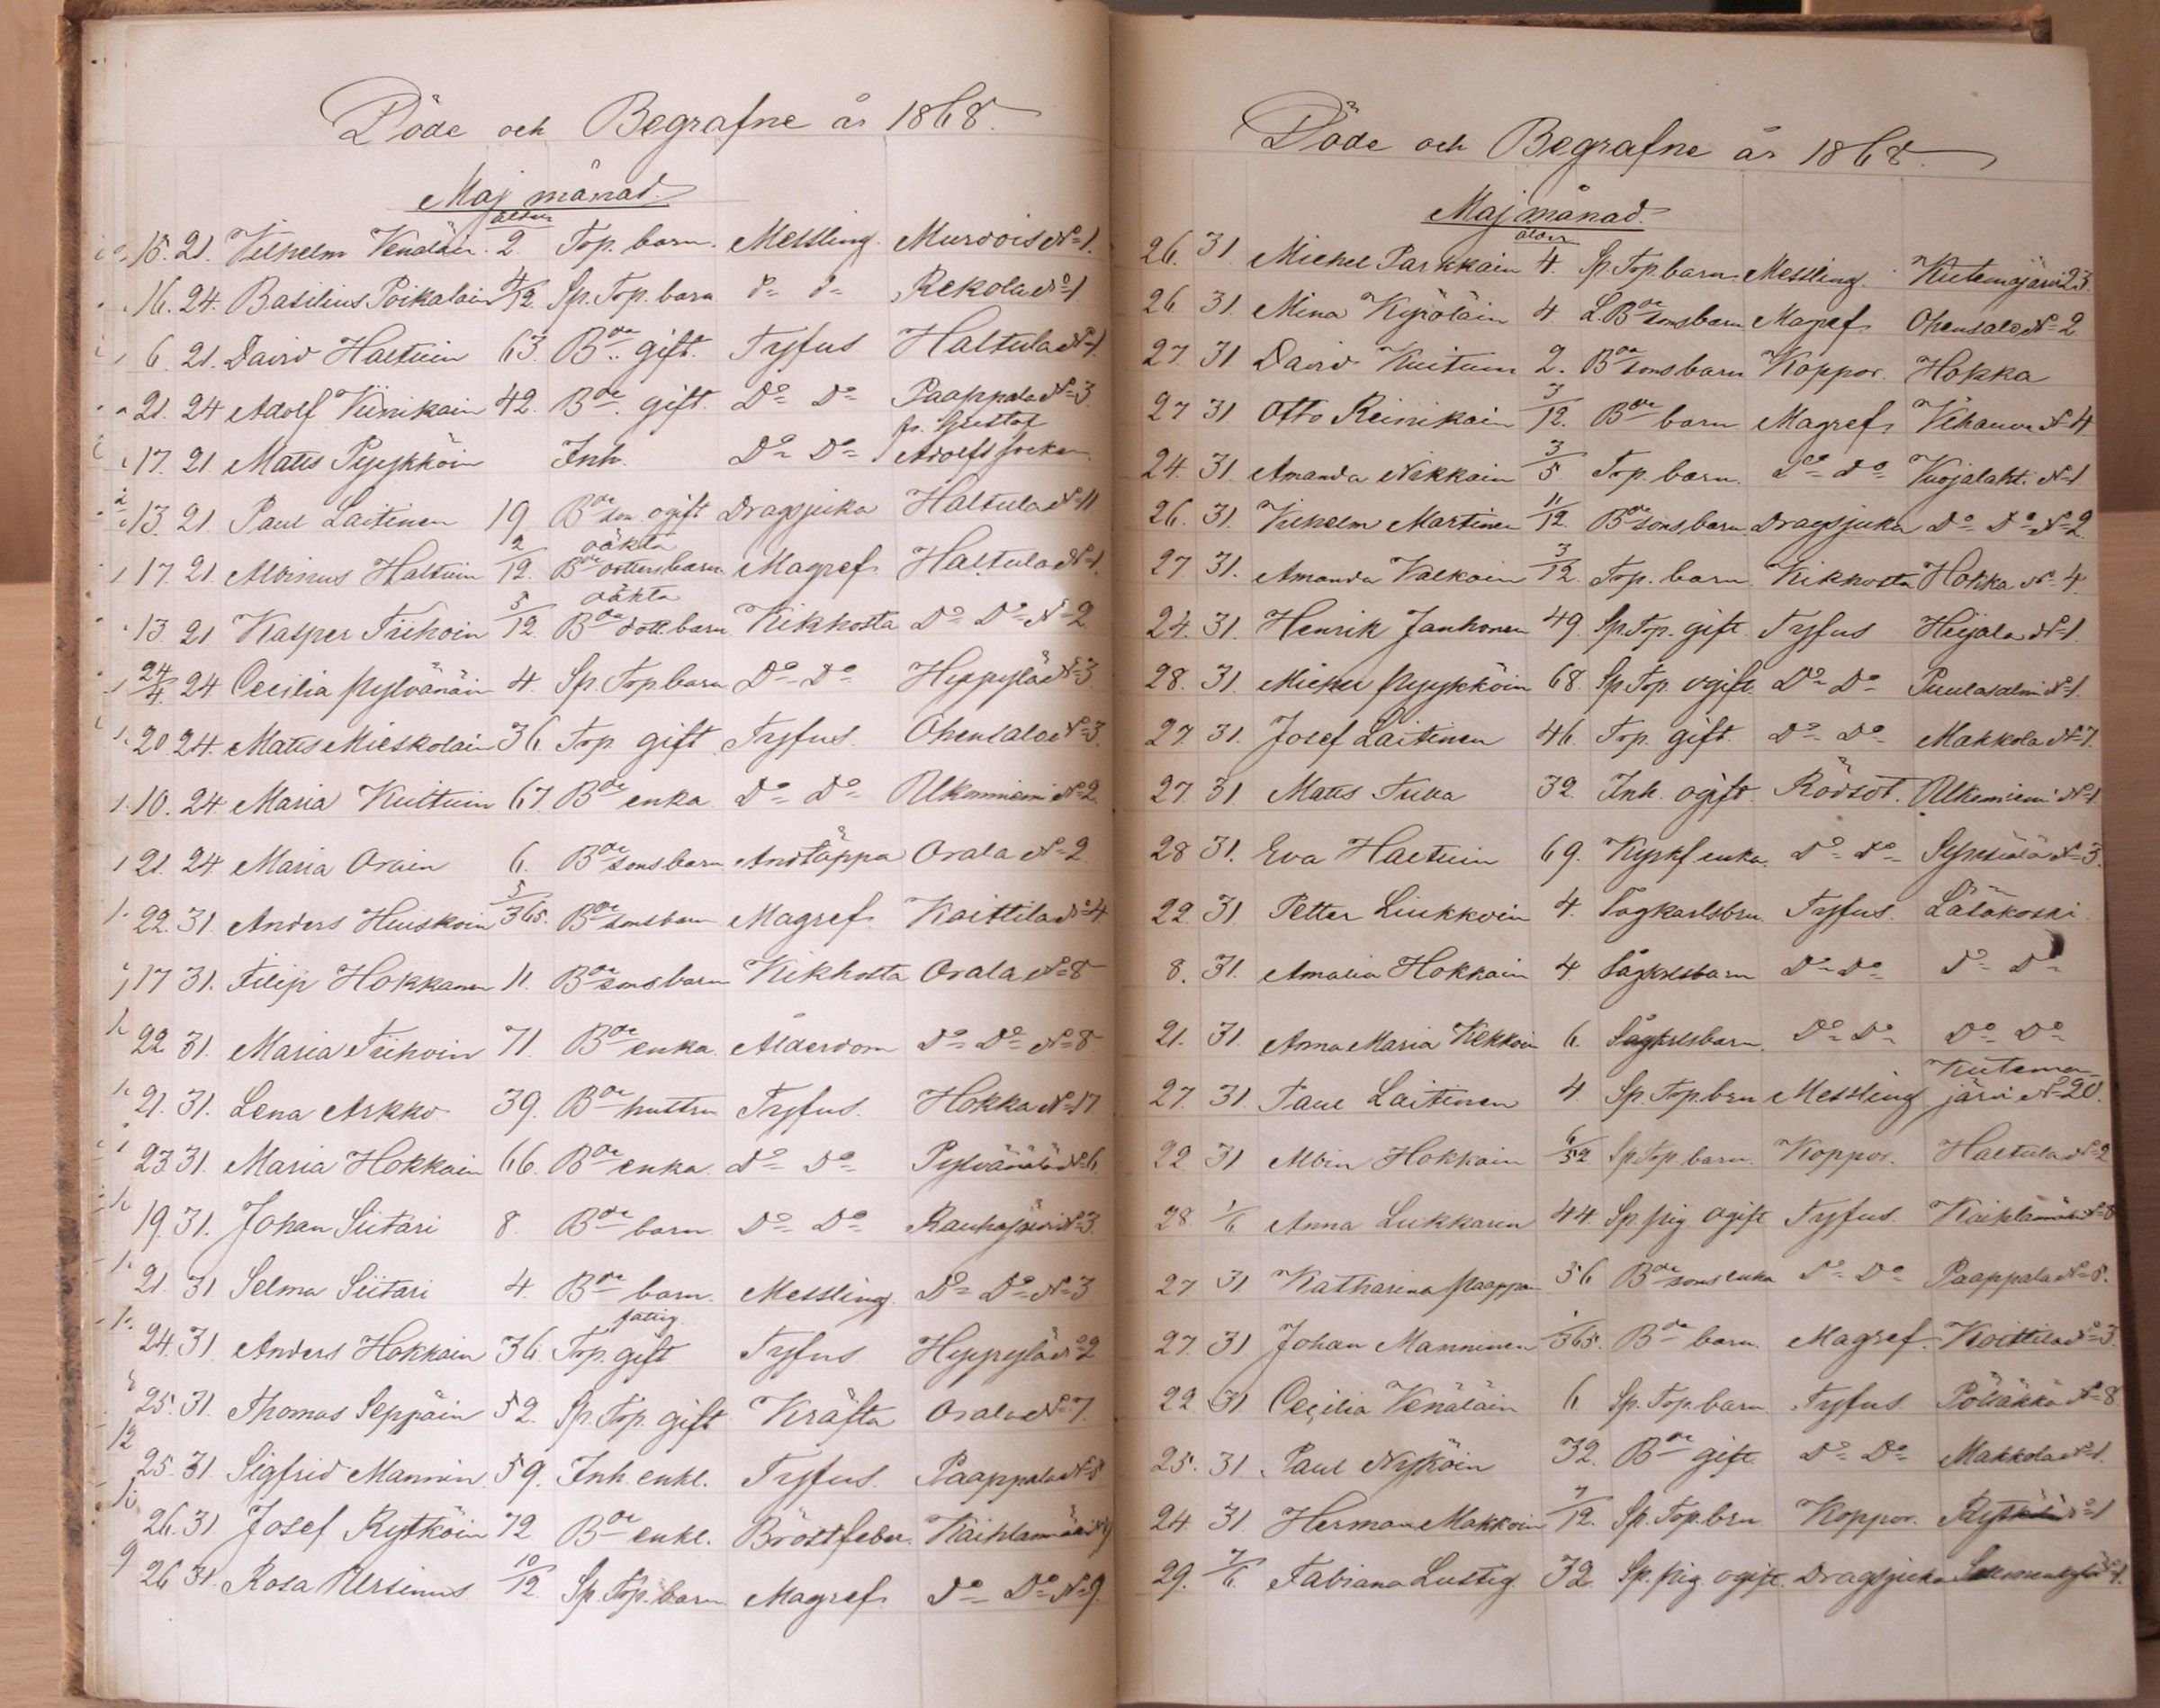 Döde och Begrafne år 1868.
Maj månad.
ålder
15. 21. Vilhelm Venäläin. 2. Torp. barn. Messling. Murdois No 1.
16. 24. Basilius Poikalain 4/12. Sp. Torp. barn do do Rekola No 1
6. 21. David Haltuin 63. Bde gift. Tyfus Haltula No 1.
21. 24 Adolf Viinikain 42. Bde gift. Do Do Paappala No 3.
fr. Gustaf
17. 21 Mats Pyykköin Inh. Do Do Adolfs socken
13. 21. Paul Laitinen 19 Bde son ogift Dragsjuka Haltula No 11
2 oäkta
17. 21. Albinus Haltuin 12. Bde dottersbarn Magref. Haltula No 1.
5 oäkta
13. 21 Kasper Tiihoin 12. Bde dott. barn. Kikhosta Do Do No 2
24/4. 24 Cecilia Pylvänäin 4. Sp. Torp. barn Do Do Hyppylä No 3
20. 24. Mats Mieskolain 36. Torp. gift Tyfus. Ohensalo No 3.
10. 24. Maria Kuituin 67. Bde enka. Do Do Ulkonniemi No 2.
21. 24 Maria Orain 6. Bde sonsbarn Andtäppa Orala No 2
22. 31. Anders Huiskoin 5/365. Bde sonsbarn Magref. Koittila No 4
17 31. Filip Hokkanen 11. Bde sonsbarn Kikhosta Orala No 8
22 31. Maria Tiihoin 71. Bde enka. Ålderdom Do Do No 8
21. 31. Lena Arkko 39. Bde hustru Tyfus. Hokka No 17
23 31. Maria Hokkain 66. Bde enka. Do Do Pylvänälä No 6.
19. 31. Johan Siitari 8. Bde barn. Do Do Rauhajärvi No 3.
21. 31 Selma Siitari 4. Bde barn. Messling. Do Do No 3
fattig.
24. 31. Anders Hokkain 36. Torp. gift Tyfus. Hyppylä No 2
25. 31. Thomas Seppäin 52. Sp. Torp. gift Kräfta Orala No 7.
25. 31. Sigfrid Mannin. 59. Inh. enkl. Tyfus. Paappala No 5
26. 31. Josef Rytköin 72 Bde enkl. Bröstfeber. Kaihlamäki No 9
26 31. Rosa Ursinus 10/12. Sp. Torp. barn Magref. Do Do No 9.
Döde och Begrafne år 1868.
Maj månad.
ålder
26. 31. Michel Parkkain 4. Sp. Torp. barn. Messling. Kutemajärvi 23.
26 31. Mina Kyröläin 4 L. Bde sonsbarn Magref. Ohensalo No 2
27. 31 David Kuituin 2. Bde sonsbarn Koppor. Hokka
27 31. Otto Reinikain 3/12. Bde barn Magref. Vihavu No 4.
24. 31. Amanda Nikkain 3/5. Torp. barn. Do do Vuojalaht. No 1
26. 31. Vilhelm Martinen 11/12. Bde sonsbarn. Dragsjuka Do Do No 2.
27. 31. Amanda Valkain 3/12. Torp. barn. Kikhosta Hokka No 4.
24. 31. Henrik Janhonen 49. Sp. Torp. gift. Tyfus Heijala No 1.
28. 31. Michel Pyykköin 68. Sp. Torp. ogift. Do Do Puulasalmi No 1.
27. 31. Josef Laitinen 46. Torp. gift. Do Do Makkola No 7.
27. 31. Mats Tuka 32. Inh. ogift. Rödsot. Ulkoniemi No 1
28 31. Eva Haltuin 69. Kyrkf. enka. Do Do Synsiälä No 3.
22. 31. Petter Liukkoin 4. Sågkarlsbrn. Tyfus. Läsäkoski
8. 31. Amalia Hokkain 4. Sågkrlsbarn Do do Do Do
21. 31. Anna Maria Kekkoin 6. Sågkrlsbarn. Do Do Do Do
Kutema-
27. 31. Paul Laitinen 4 Sp. Torp. brn Messling järvi No 20.
22 31 Albin Hokkain 6/52 Sp. Torp. barn. Koppor. Haltula No 2
28. 1/6. Anna Lukkarin 44. Sp. pig. ogift Tyfus. Kaihlamäki No 8
27 31 Katharina Paappan 56 Bde sons enka Do Do Paappala No 5.
27. 31. Johan Manninen 1/365. Bde barn. Magref. Koittila No 3.
22. 31 Cecilia Venäläin 6 Sp. Torp. barn. Tyfus Pölläkkä No 8
25. 31 Paul Nyköin 32. Bde gift. Do Do Makkola No 1.
24. 31. Herman Makkoin 7/12. Sp. Torp. brn Koppor. Rytkölä No 1
29. 7/6. Fabiana Lustig. 32 Sp. pig. ogift. Dragsjuka